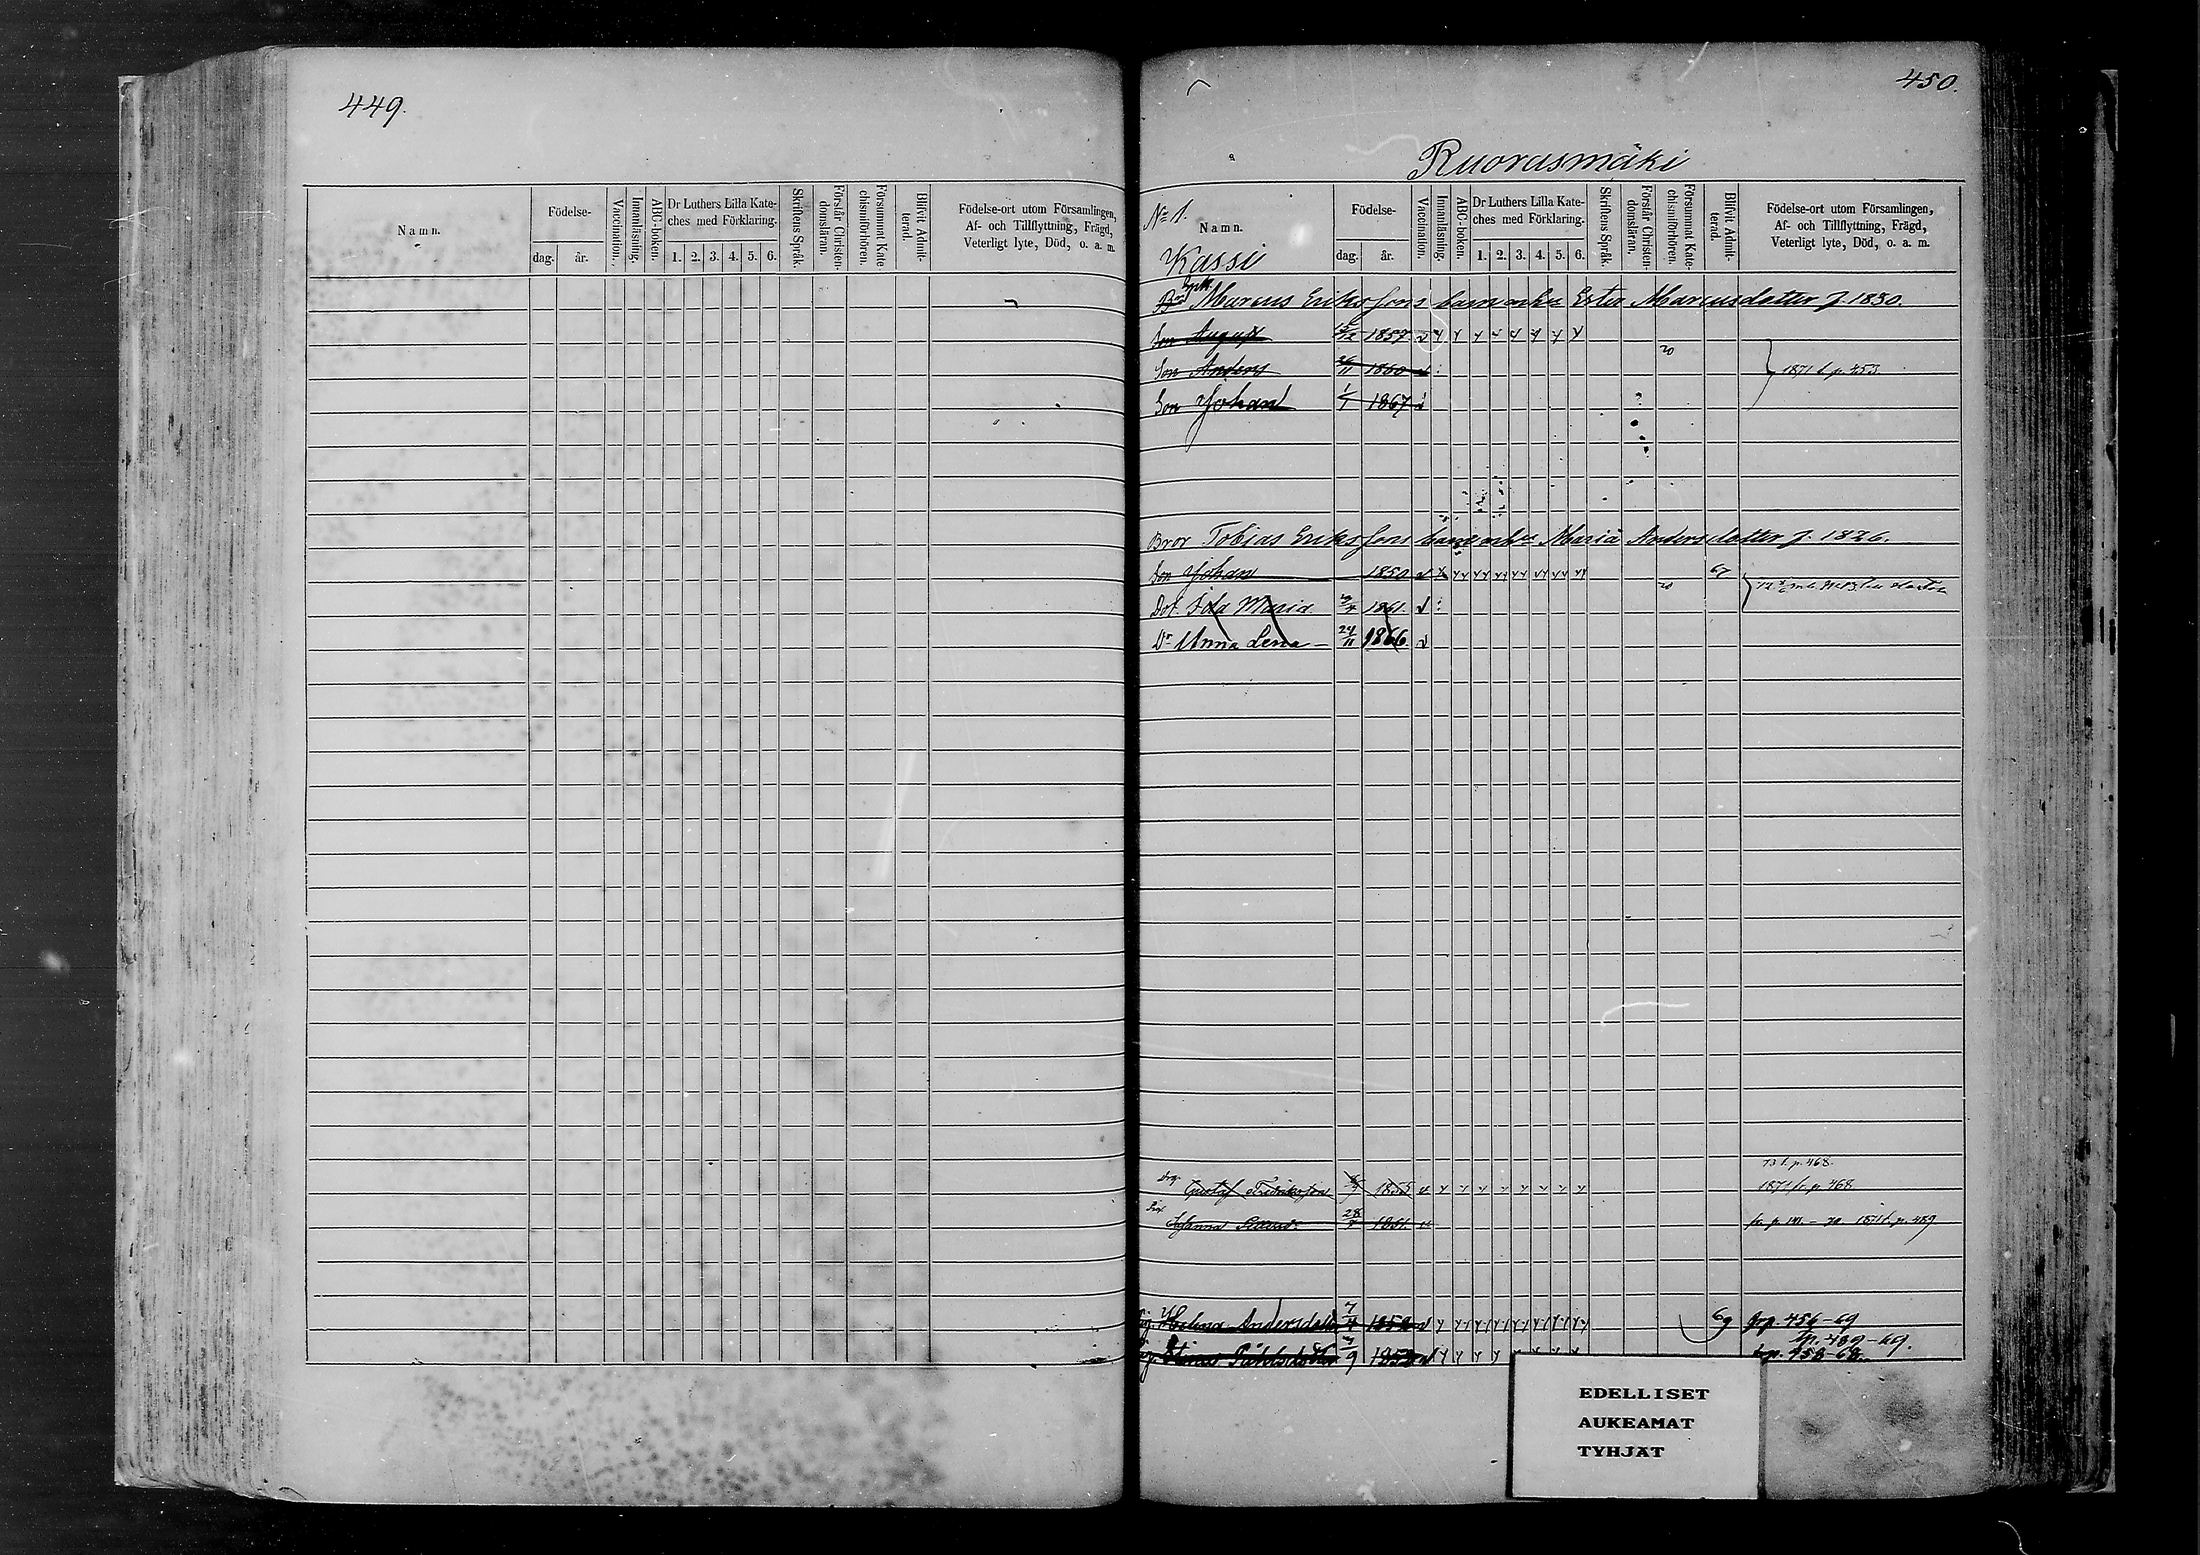 449.
Namn.
Födelse-
dag.
år.
Vaccination.
Innanläsning.
ABC-boken.
Dr Luthers Lilla Kate-
ches med Förklaring.
1. 2. 3. 4. 5. 6.
Skriftens Språk.
Förstår Christen-
domsläran.
Försummat Kate-
chismiförhören.
Blifvit Admit-
terad.
Födelse-ort utom Församlingen,
Af- och Tillflyttning, Frägd,
Veterligt lyte, Död, o. a. m.
450.
Ruorasmäki
No 1.
Namn.
Kassi
Födelse-
dag.
år.
Vaccination.
Innanläsning.
ABC-boken.
Dr Luthers Lilla Kate-
ches med Förklaring.
1. 2. 3. 4. 5. 6.
Skriftens Språk.
Förstår Christen-
domsläran.
Försummat Kate-
chismiförhören.
Blifvit Admit-
terad.
Födelse-ort utom Församlingen,
Af- och Tillflyttning, Frägd,
Veterligt lyte, Död, o. a. m.
Marcus Eriksson Ester Marcusdotter f. 1830.
Son August 1857
Son Anders 26/11 1860 1871 t. p. 453.
Son Johan 1867
Bror Tobias Eriksson Maria Andersdotter f. 1826.
Son Johan 1850 67
Dot. Ida Maria 1861.
Dr Anna Lena 24/11 1866.
73 t. p. 468.
Gustaf Fredriksson 1855 1871 fr. p. 468
Johanna 28 1861. 1871 t. p. 489
Helena Andersdotter 7/4 1852 69 fr p. 456-69
tp. 489-69.
Stina 3/9 1852 fr p. 458-68.
EDELLISET
AUKEAMAT
TYHJÄT